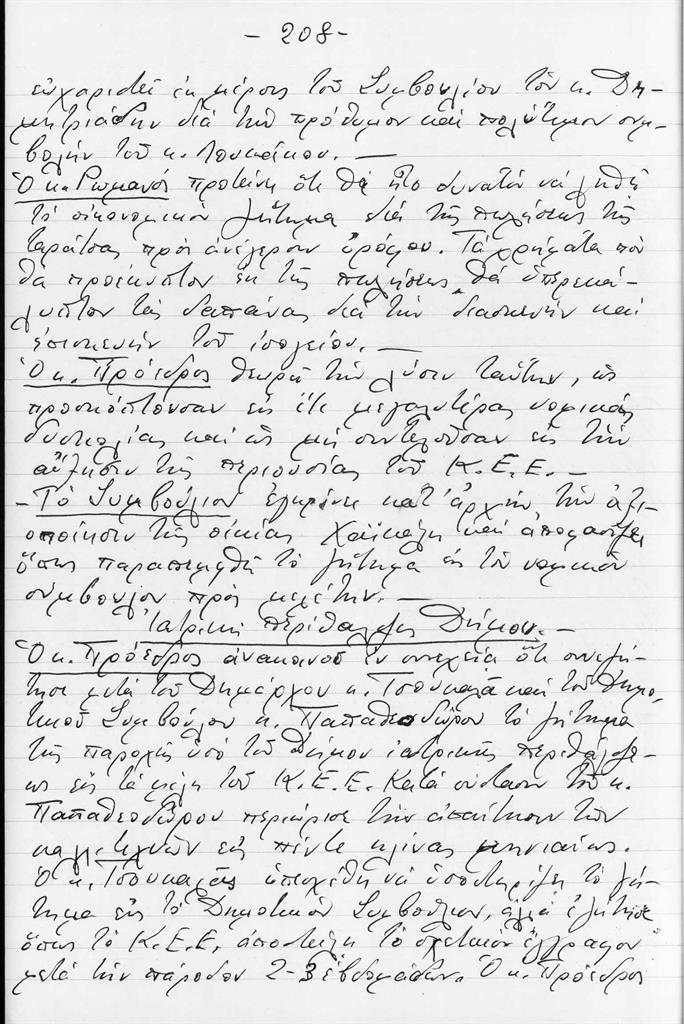 - 208 -
εὐχαριστεῖ ἐκ μέρους τοῦ Συμβουλίου τὸν κ. Δη-
μητριάδην διὰ τὴν πρόθυμον καὶ πολύτιμον συμ-
βολὴν τοῦ κ. Λουκάκου. —
Ὁ κ. Ρωμανός προτείνη ὅτι θὰ ἦτο δυνατὸν νὰ λυθῇ
τὸ οἰκονομικὸν ζήτημα διὰ τῆς πωλήσεως τῆς
ταράτσας πρὸς ἀνέγερσιν ὀρόφου. Τὰ χρήματα ποὺ
θὰ προέκυπτον ἐκ τῆς πωλήσεως θὰ ὑπερεκά-
λυπτον τὰς δαπάνας διὰ τὴν διασκευὴν καὶ
ἐπισκευὴν τοῦ ἰσογείου. —
Ὁ κ. Πρόεδρος θεωρῇ τὴν λύσιν ταύτην, ὡς
προσκόπτουσαν εἰς ἔτι μεγαλυτέρας νομικάς
δυσκολίας καὶ ὡς μὴ συντελοῦσαν εἰς τὴν
αὔξησιν τῆς περιουσίας τοῦ Κ.Ε.Ε. —
- Τὸ Συμβούλιον ἐγκρίνει κατ' ἀρχὴν τὴν ἀξι-
οποίησιν τῆς οἰκίας Χαϊκάλη καὶ ἀποφασίζει
ὅπως παραπεμφθῇ τὸ ζήτημα εἰς τὸν νομικὸν
σύμβουλον πρὸς μελέτην. —
Ἰατρικὴ περίθαλψις Δήμου. —
Ὁ κ. Πρόεδρος ἀνακοινοῖ ἐν συνεχείᾳ ὅτι συνεζή-
τησε μετὰ τοῦ Δημάρχου κ. Τσουκαλᾶ καὶ τοῦ Δημο-
τικοῦ Συμβούλου κ. Παπαθεοδώρου τὸ ζήτημα
τῆς παροχῆς ὑπὸ τοῦ Δήμου ἰατρικῆς περιθάλψε-
ως εἰς τὰ μέλη τοῦ Κ.Ε.Ε. Κατὰ σύστασιν τοῦ κ.
Παπαθεοδώρου περιώρισε τὴν ἀπαίτησιν τῶν
καλλιτεχνῶν εἰς πέντε κλίνας μηνιαίως.
Ὁ κ. Τσουκαλᾶς ὑπεσχέθη νὰ ὑποστηρίξῃ τὸ ζή-
τημα εἰς τὸ Δημοτικὸν Συμβούλιον, ἀλλὰ ἐζήτησε
ὅπως τὸ Κ.Ε.Ε. ἀποστείλῃ τὸ σχετικὸν ἔγγραφον
μετὰ τὴν πάροδον 2-3 ἑβδομάδων. Ὁ κ. Πρόεδρος